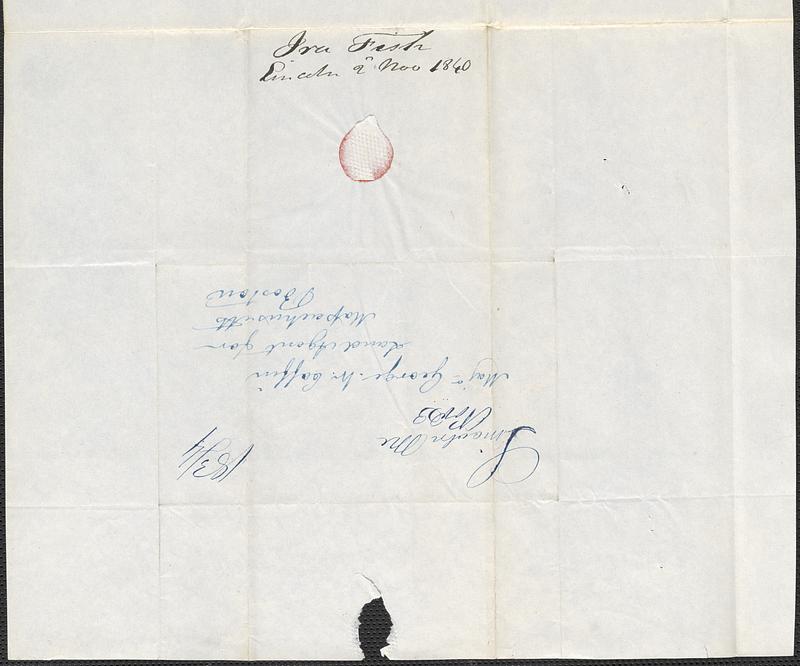 Ira Fish
Lincoln 2 Nov 1840
Lincoln Me
Nov 23
18 3/4
Maj = George W. Coffin
Land Agent for
Massachusetts
Boston